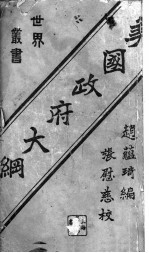 世界
叢書
美國政府大綱
趙蘊琦編
張慰慈校